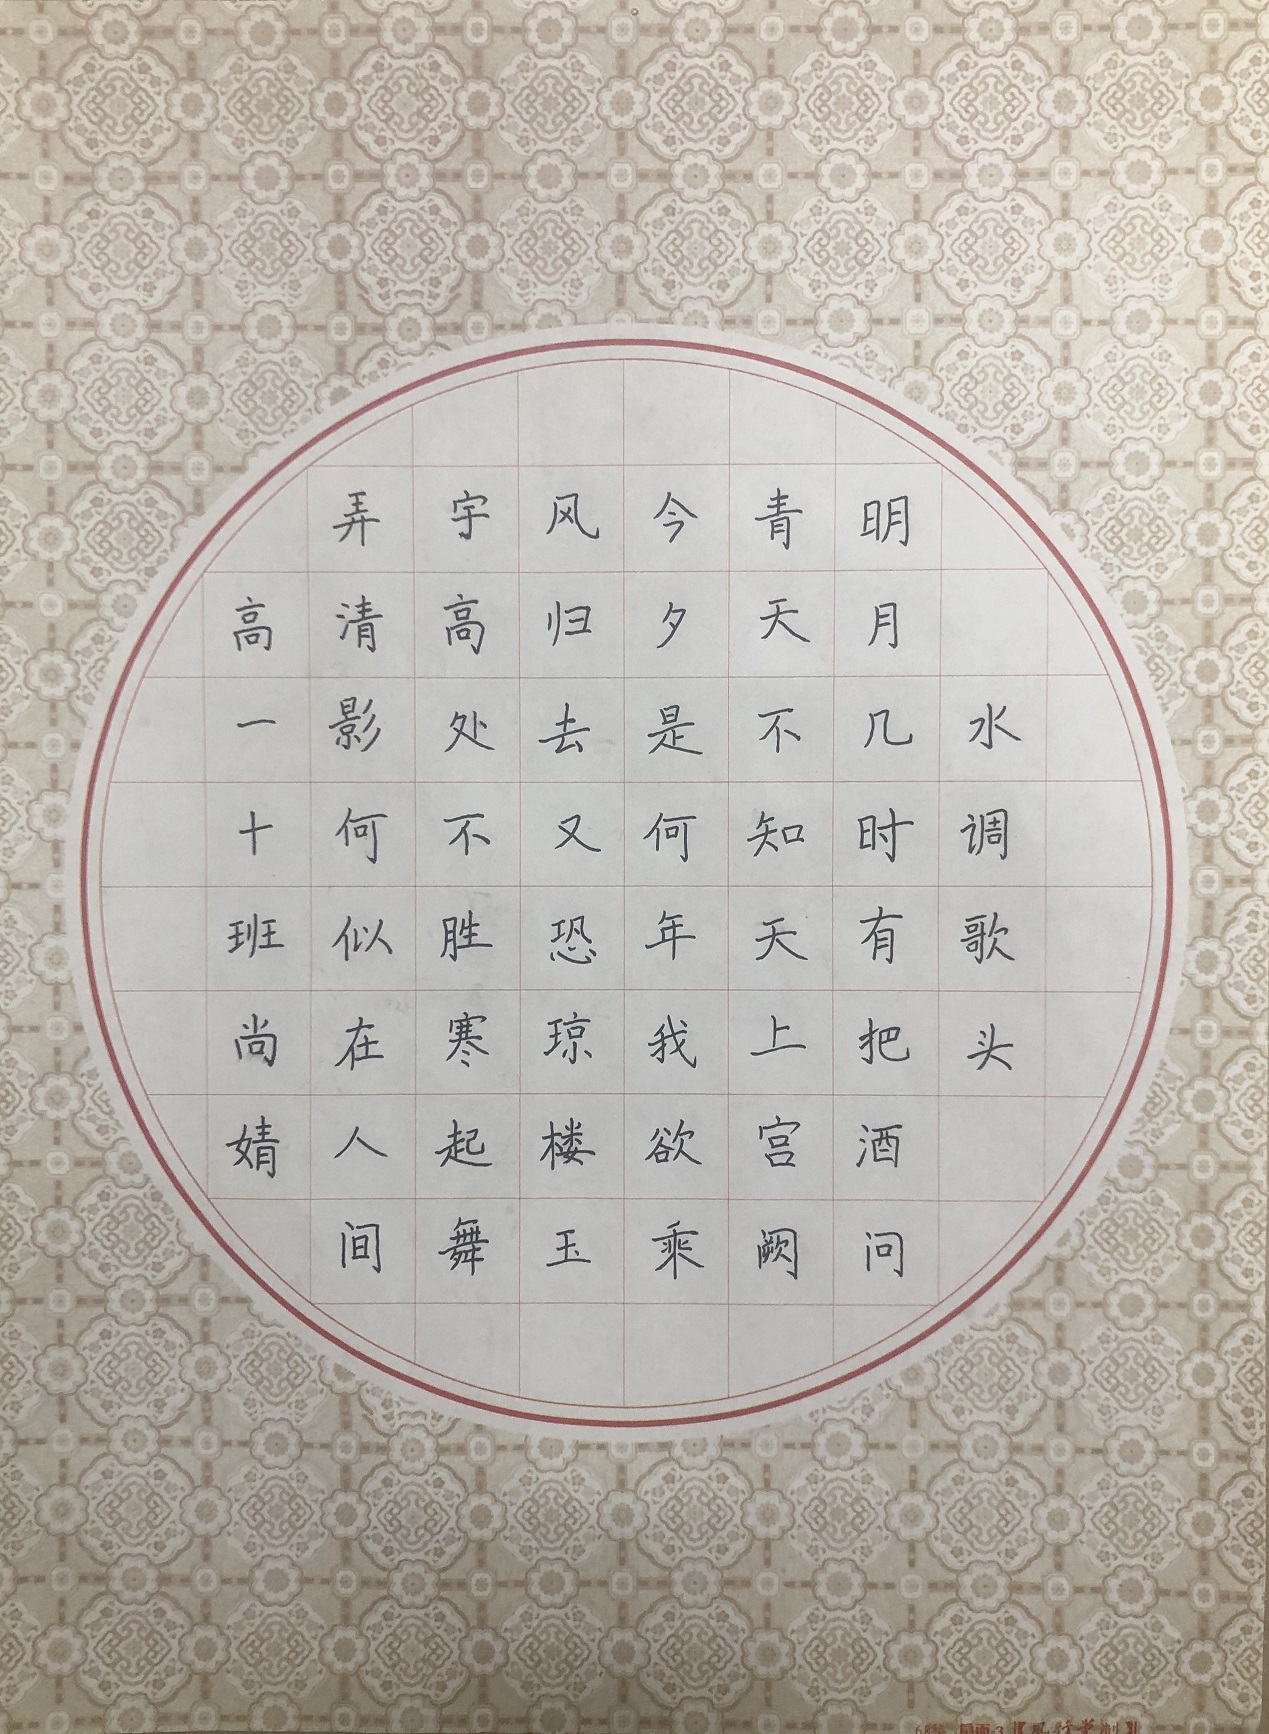 水调歌头
明月几时有把酒问
青天不知天上宫阙
今夕是何年我欲乘
风归去又恐琼楼玉
宇高处不胜寒起舞
弄清影何似在人间
高一十班尚婧